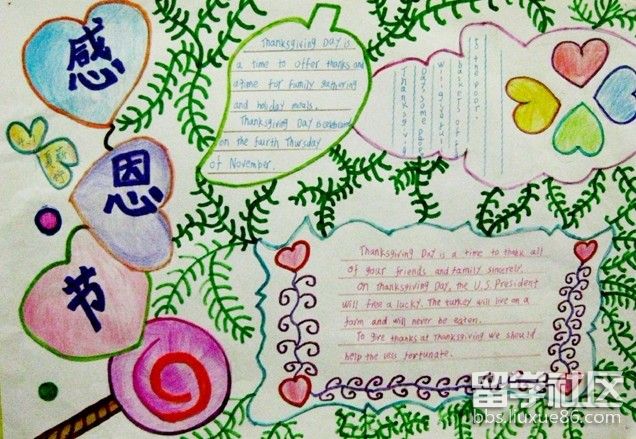 感
恩
节
Thanksgiving Day is
a time to offer thanks and
a time for family gathering
and holiday meals.
Thanksgiving Day is
on the fourth Thursday
of November.
to the poor.
baskets of
will give
Day, some
Thanksgiving
Thanksgiving Day is a time to thank all
of your friends and family sincerely.
On Thanksgiving Day, the U.S. President
will free a lucky. The turkey will live on a
farm and will never be eaten.
To give thanks at Thanksgiving we should
help the less fortunate.
留学社区
bbs.liuxue86.com